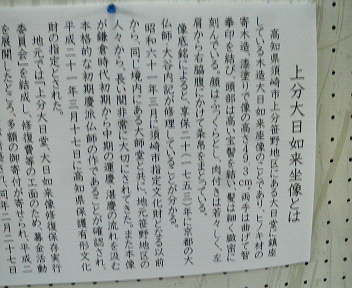 上分大日如来坐像とは
高知県須崎市上分笹野地区にある大日堂に鎮座
している木造大日如来座像のことであり、ヒノキ材の
寄木造、漆塗りで像の高さ93cm、両手は曲げて智
拳印を結び、頭部は高い宝髻を結い、髪は細く緻密に
刻んでいる。顔はふっくらとし、肉付きは若々しく、左
肩から右脇腹にかけて条帛をまとっている。
像底銘によると、享保二十(一七五三)年に京都の大
仏師、大谷内記が修理していることが分かる。
昭和六十一年三月に須崎市指定文化財となる以前
から、同じ境内にある大師堂と共に、地元笹野地区の
人々から、長い間非常に大切にされてきた。また本像
が鎌倉時代初期から中期の運慶、湛慶の流れを汲む
本格的な初期慶派仏師の作であることが確認され、
平成二十一年三月十七日に高知県保護有形文化
財の指定とされた。
地元では「上分大日堂、大日如来像修復保存実行
委員会」を結成し、浄復費等の工面のため、募金活動
を展開したところ、多額の御寄付が寄せられ、平成二
年二月二十七日